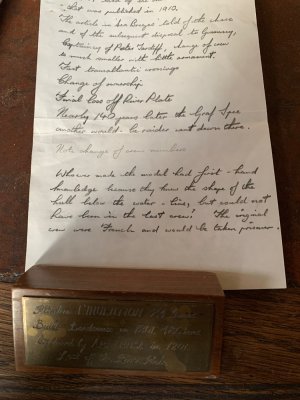 that was published in 1910.
"The article in Sea Breezes told of the chase
and of the subsequent disposal to Guernsey,
Captaincy of Peter Tardiff, change of crew
to much smaller with little armament.
Fast transatlantic crossings
Change of ownership
Final loss off River Plate
Nearly 140 years later the Graf Spee
another would-be raider went down there.
Note change of crew numbers
Whoever made the model had first-hand
knowledge because they knew the shape of the
hull below the water-line, but could not
have been in the last crew! The original
crew were French and would be taken prisoner.
Built
in
Captured by
Lost off the River Plate